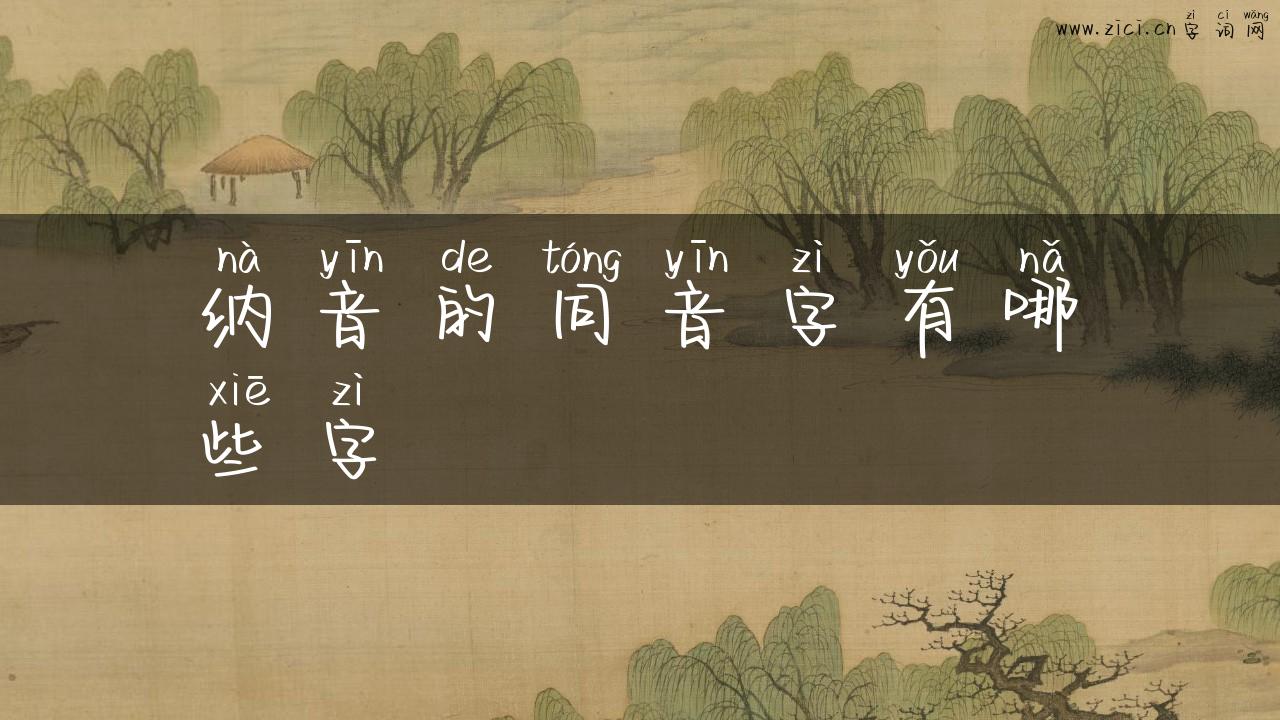 zì cí wǎng
www.zici.cn 字 词 网
nà yīn de tóng yīn zì yǒu nǎ
纳 音 的 同 音 字 有 哪
xiē zì
些 字